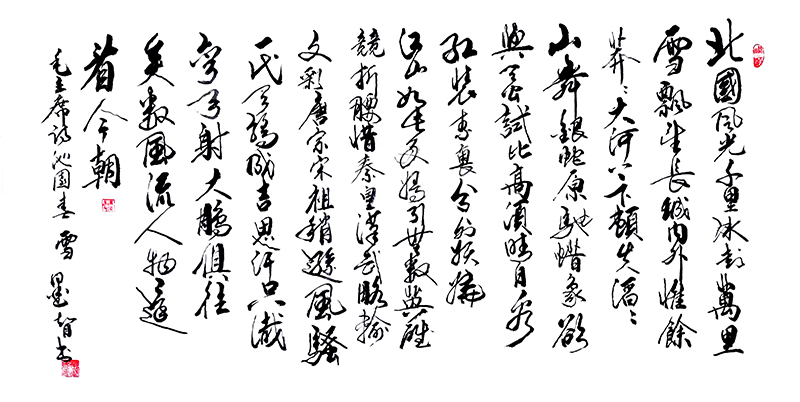 北國風光千里冰封萬里
雪飄望長城內外惟餘
莽〻大河上下頓失滔〻
山舞銀蛇原馳蠟象欲
與天公試比高須晴日看
紅裝素裹分外妖嬈
江山如此多嬌引無數英雄
競折腰惜秦皇漢武略輸
文彩唐宗宋祖稍遜風騷
一代天驕成吉思汗只識
彎弓射大鵰俱往
矣數風流人物還
看今朝
毛主席詩沁園春 雪 墨智書